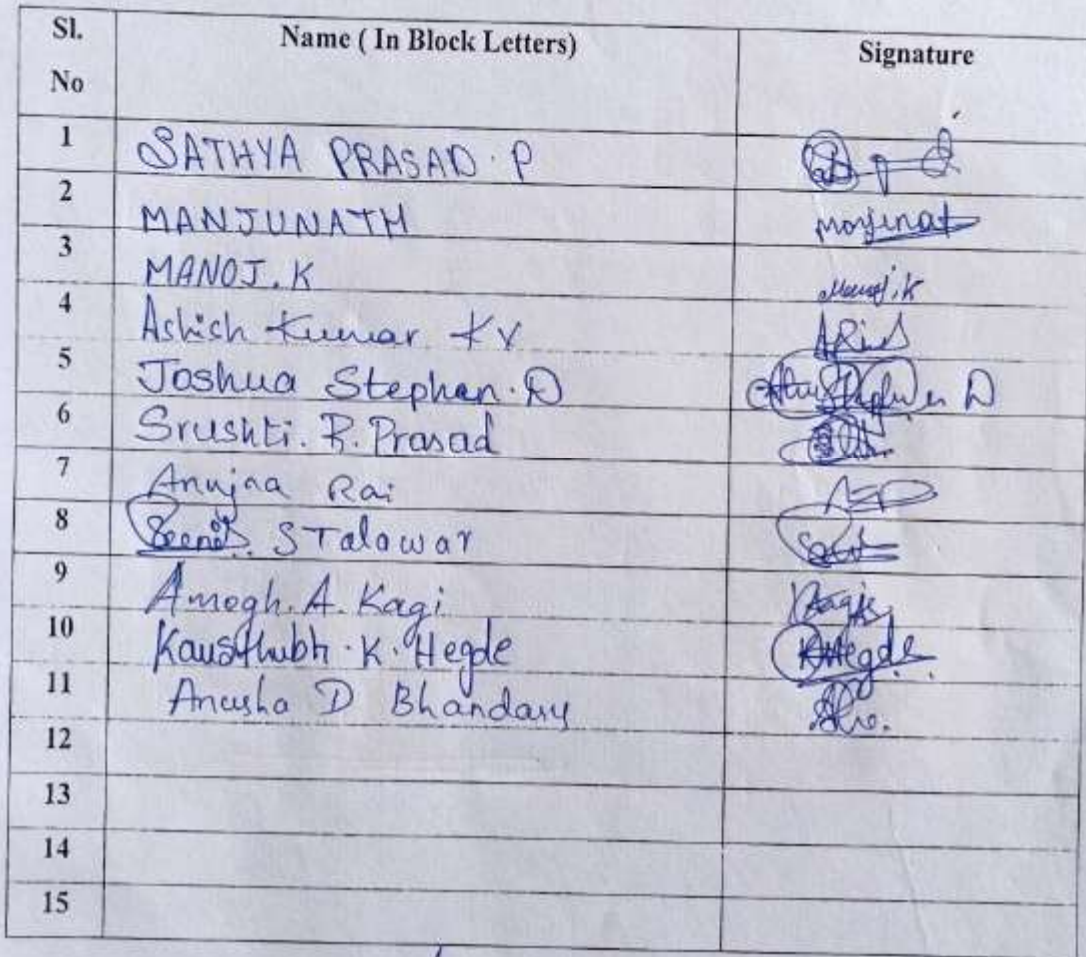 Sl. No Name ( In Block Letters) Signature
1 SATHYA PRASAD. P
2 MANJUNATH
3 MANOJ. K Manoj.K
4 Ashish Kumar K V
5 Joshua Stephen. D
6 Srushti. R. Prasad
7 Anujna Rai
8 S Talawar
9 Amogh. A. Kagi Kagi
10 Kausthubh. K. Hegde KHegde
11 Anusha D Bhandary
12
13
14
15